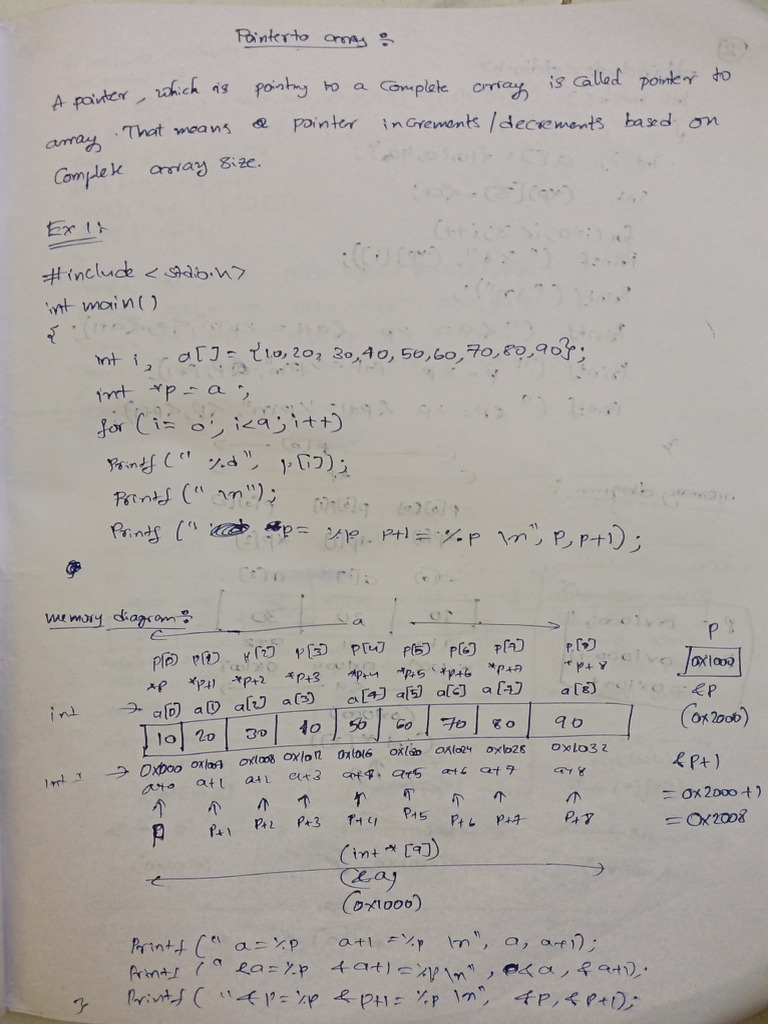 Pointer to array :-
A pointer, which is pointng to a Complete array is called pointer to
array. That means a pointer increments/decrements based on
Complete array size.
Ex 1:
#include <stdio.h>
int main()
{
int i, a[] = {10,20,30,40,50,60,70,80,90};
int *p = a ;
for (i= 0; i<9; i++)
Printf (" %d", p[i]);
Printf (" \n");
Printf (" p= %p p+1 = %p \n", P, P+1);
memory diagram :-
a P
P[0] P[1] P[2] P[3] P[4] P[5] P[6] P[7] P[8] 0x1000
*P *P+1 *P+2 *P+3 *P+4 *P+5 *P+6 *P+7 *P+8 &P
int → a[0] a[1] a[2] a[3] a[4] a[5] a[6] a[7] a[8] (0x2000)
10 20 30 40 50 60 70 80 90
int * → 0x1000 0x1004 0x1008 0x1012 0x1016 0x1020 0x1024 0x1028 0x1032 &P+1
a+0 a+1 a+2 a+3 a+4 a+5 a+6 a+7 a+8 = 0x2000+1
↑ ↑ ↑ ↑ ↑ ↑ ↑ ↑ ↑
P P+1 P+2 P+3 P+4 P+5 P+6 P+7 P+8 = 0x2008
(int * [9])
(&a)
(0x1000)
Printf (" a=%p a+1 =%p \n", a, a+1);
Printf (" &a=%p &a+1=%p\n", &a, &a+1);
} Printf (" &P=%p &P+1= %p \n", &P, &P+1);